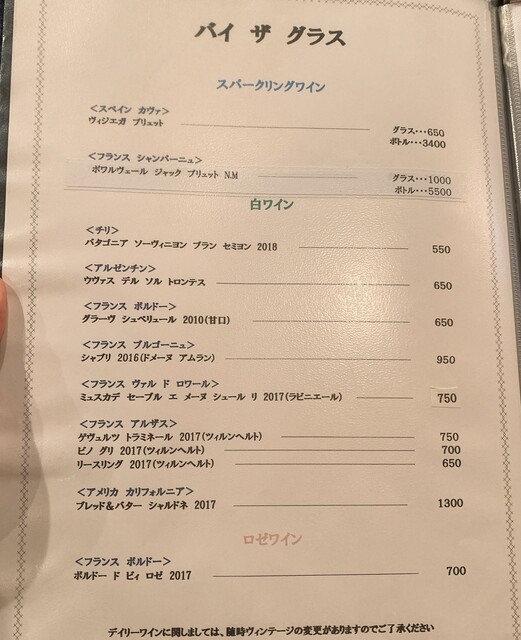 バイ ザ グラス
スパークリングワイン
<スペイン カヴァ>
ヴィジエガ ブリュット
グラス・・・650
ボトル・・・3400
<フランス シャンパーニュ>
ボワルヴェール ジャック ブリュット N.M
グラス・・・1000
ボトル・・・5500
白ワイン
<チリ>
パタゴニア ソーヴィニヨン ブラン セミヨン 2018 550
<アルゼンチン>
ウヴァス デル ソル トロンテス 650
<フランス ボルドー>
グラーヴ シュペリュール 2010(甘口) 650
<フランス ブルゴーニュ>
シャブリ 2016(ドメーヌ アムラン) 950
<フランス ヴァル ド ロワール>
ミュスカデ セーブル エ メーヌ シュール リ 2017(ラビニエール) 750
<フランス アルザス>
ゲヴュルツ トラミネール 2017(ツィルンヘルト) 750
ピノ グリ 2017(ツィルンヘルト) 700
リースリング 2017(ツィルンヘルト) 650
<アメリカ カリフォルニア>
ブレッド&バター シャルドネ 2017 1300
ロゼワイン
<フランス ボルドー>
ボルドー ド ビィ ロゼ 2017 700
デイリーワインに関しましては、随時ヴィンテージの変更がありますのでご了承ください